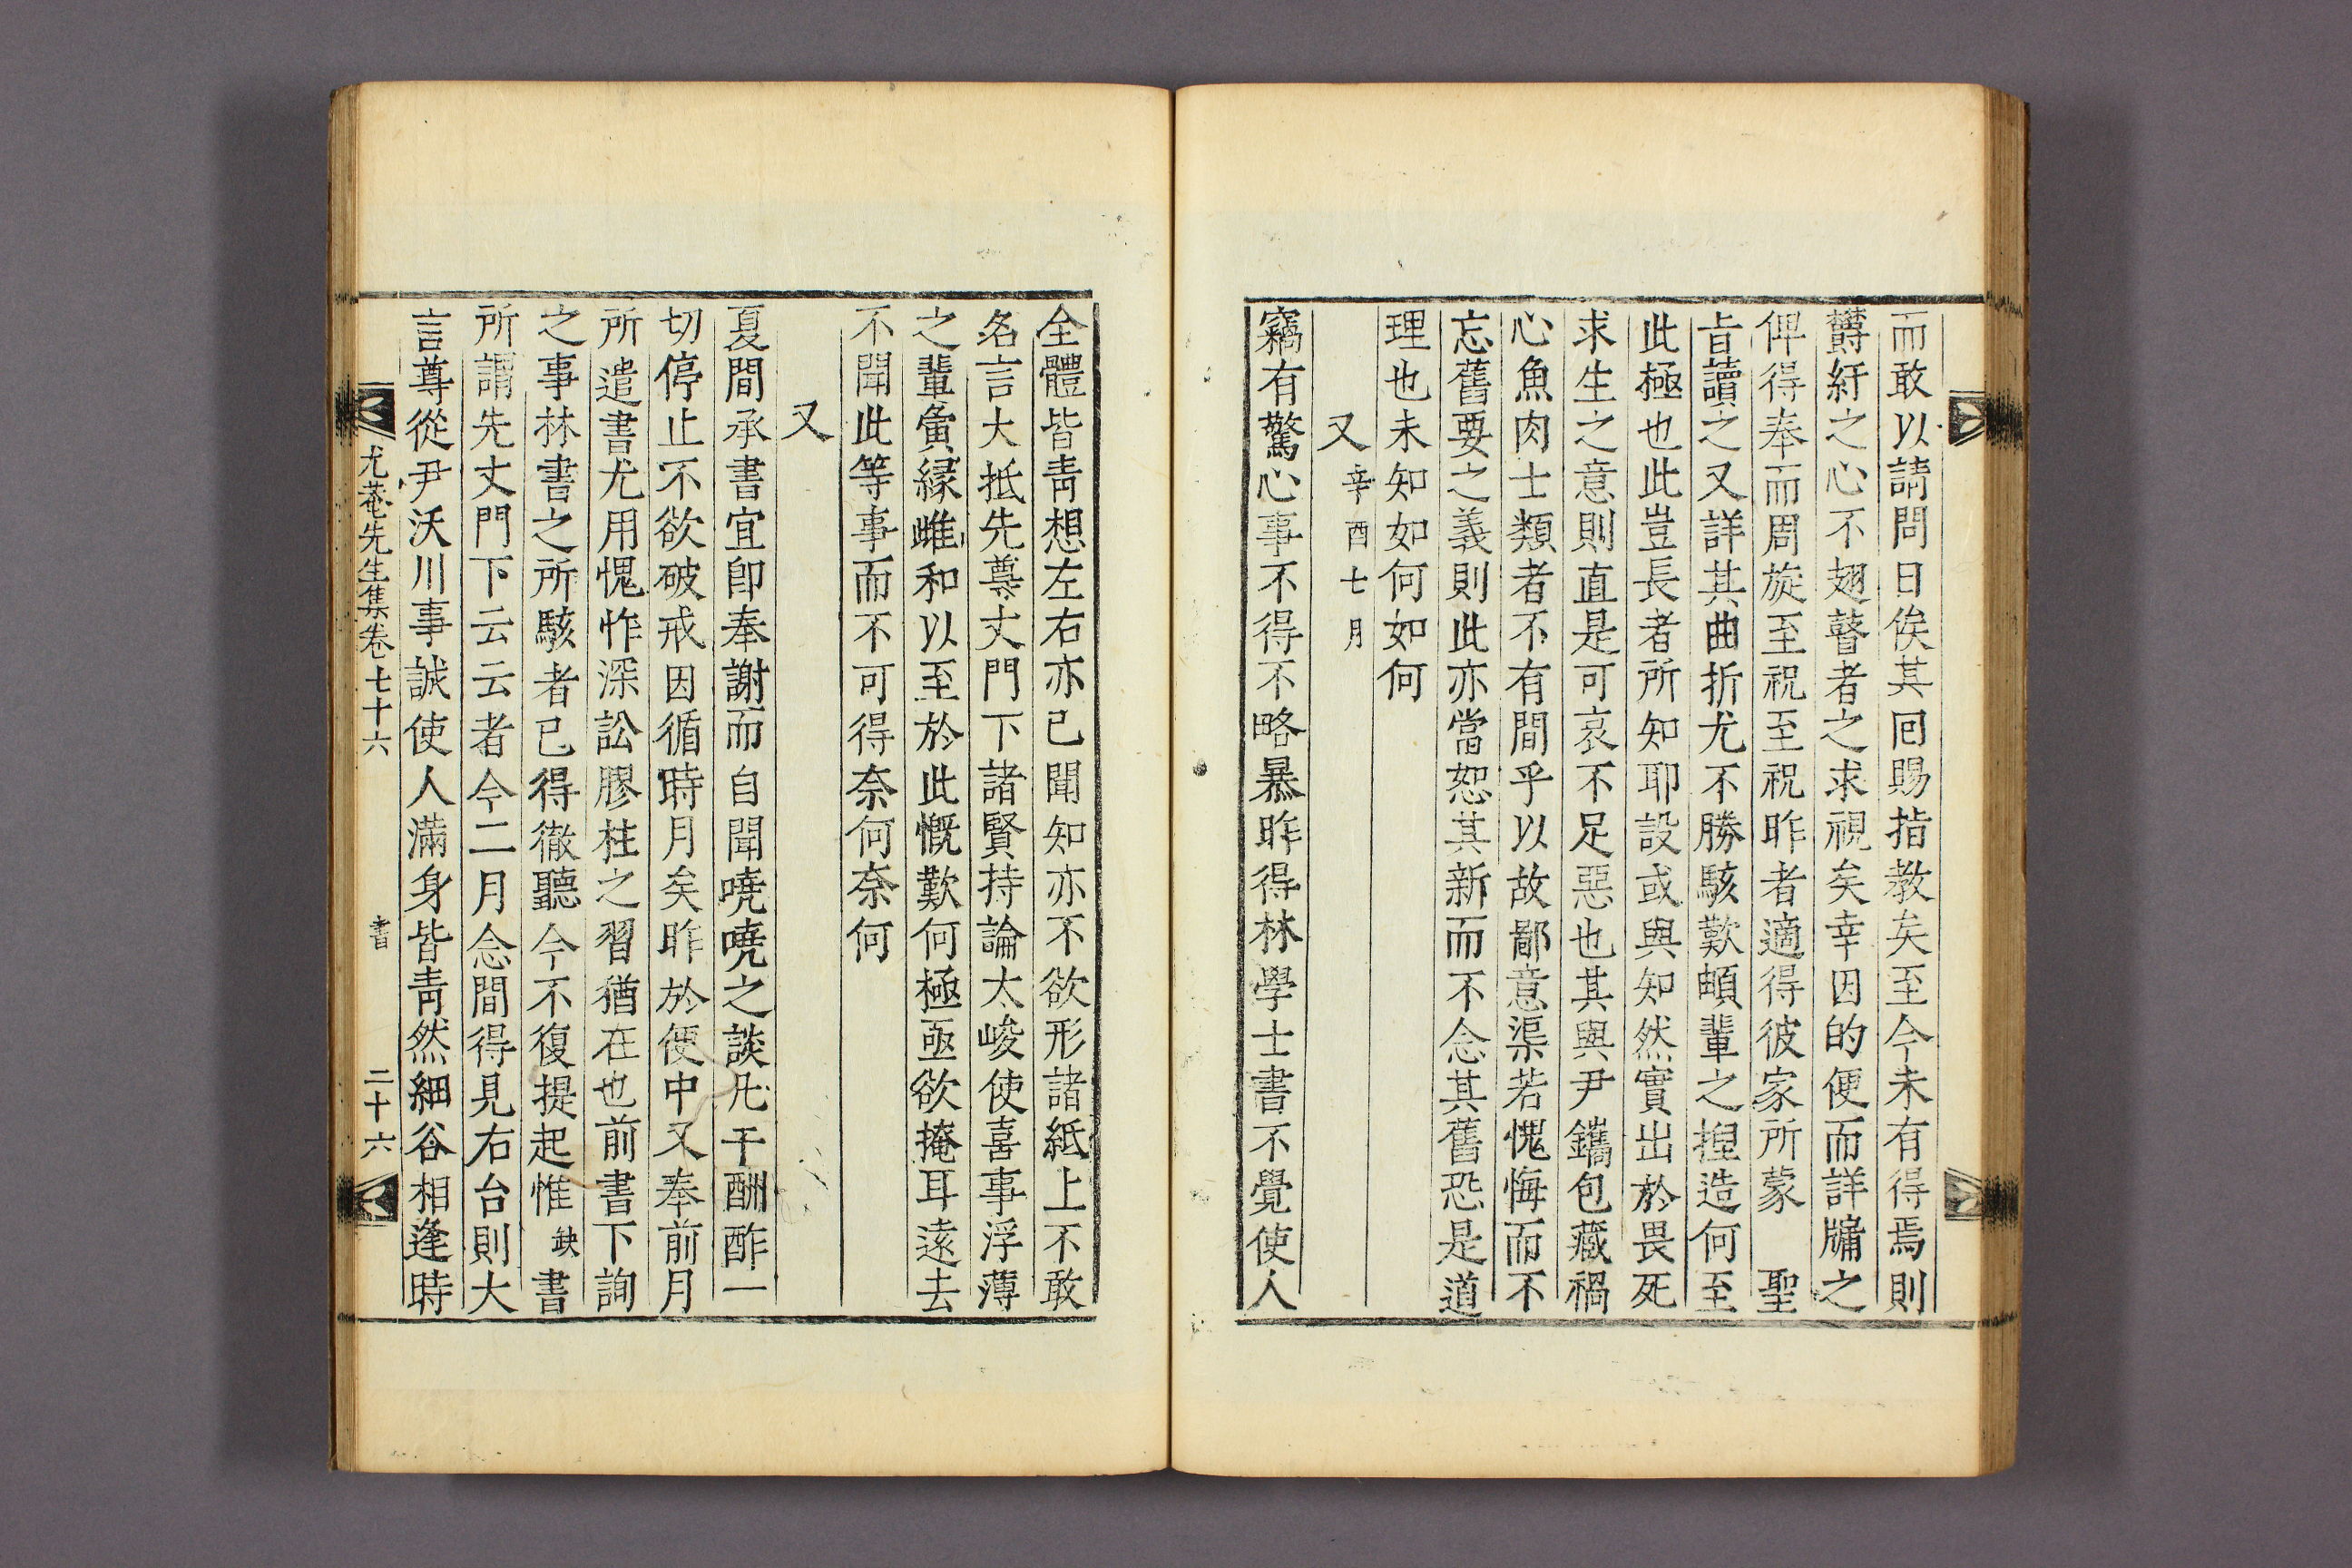 而敢以請問日俟其囘賜指教矣至今未有得焉則
欝紆之心不翅瞽者之求視矣幸因的便而詳牖之
俾得奉而周旋至祝至祝昨者適得彼家所蒙　聖
旨讀之又詳其曲折尤不勝駭歎䫉輩之揑造何至
此極也此豈長者所知耶設或與知然實出於畏死
求生之意則直是可哀不足惡也其與尹鑴包藏禍
心魚肉士類者不有間乎以故鄙意渠若愧悔而不
忘舊要之義則此亦當恕其新而不念其舊恐是道
理也未知如何如何
又辛酉七月
竊有驚心事不得不略暴昨得林學士書不覺使人
全體皆靑想左右亦已聞知亦不欲形諸紙上不敢
名言大抵先尊丈門下諸賢持論太峻使喜事浮薄
之輩夤縁雌和以至於此慨歎何極亟欲掩耳遠去
不聞此等事而不可得奈何奈何
又
夏間承書宜卽奉謝而自聞嘵嘵之談凡干酬酢一
切停止不欲破戒因循時月矣昨於便中又奉前月
所遣書尤用愧怍深訟膠柱之習猶在也前書下詢
之事林書之所駭者已得徹聽今不復提起惟缺書
所謂先丈門下云云者今二月念間得見右台則大
言尊從尹沃川事誠使人滿身皆靑然細谷相逢時
尤菴先生集卷七十六　書　二十六